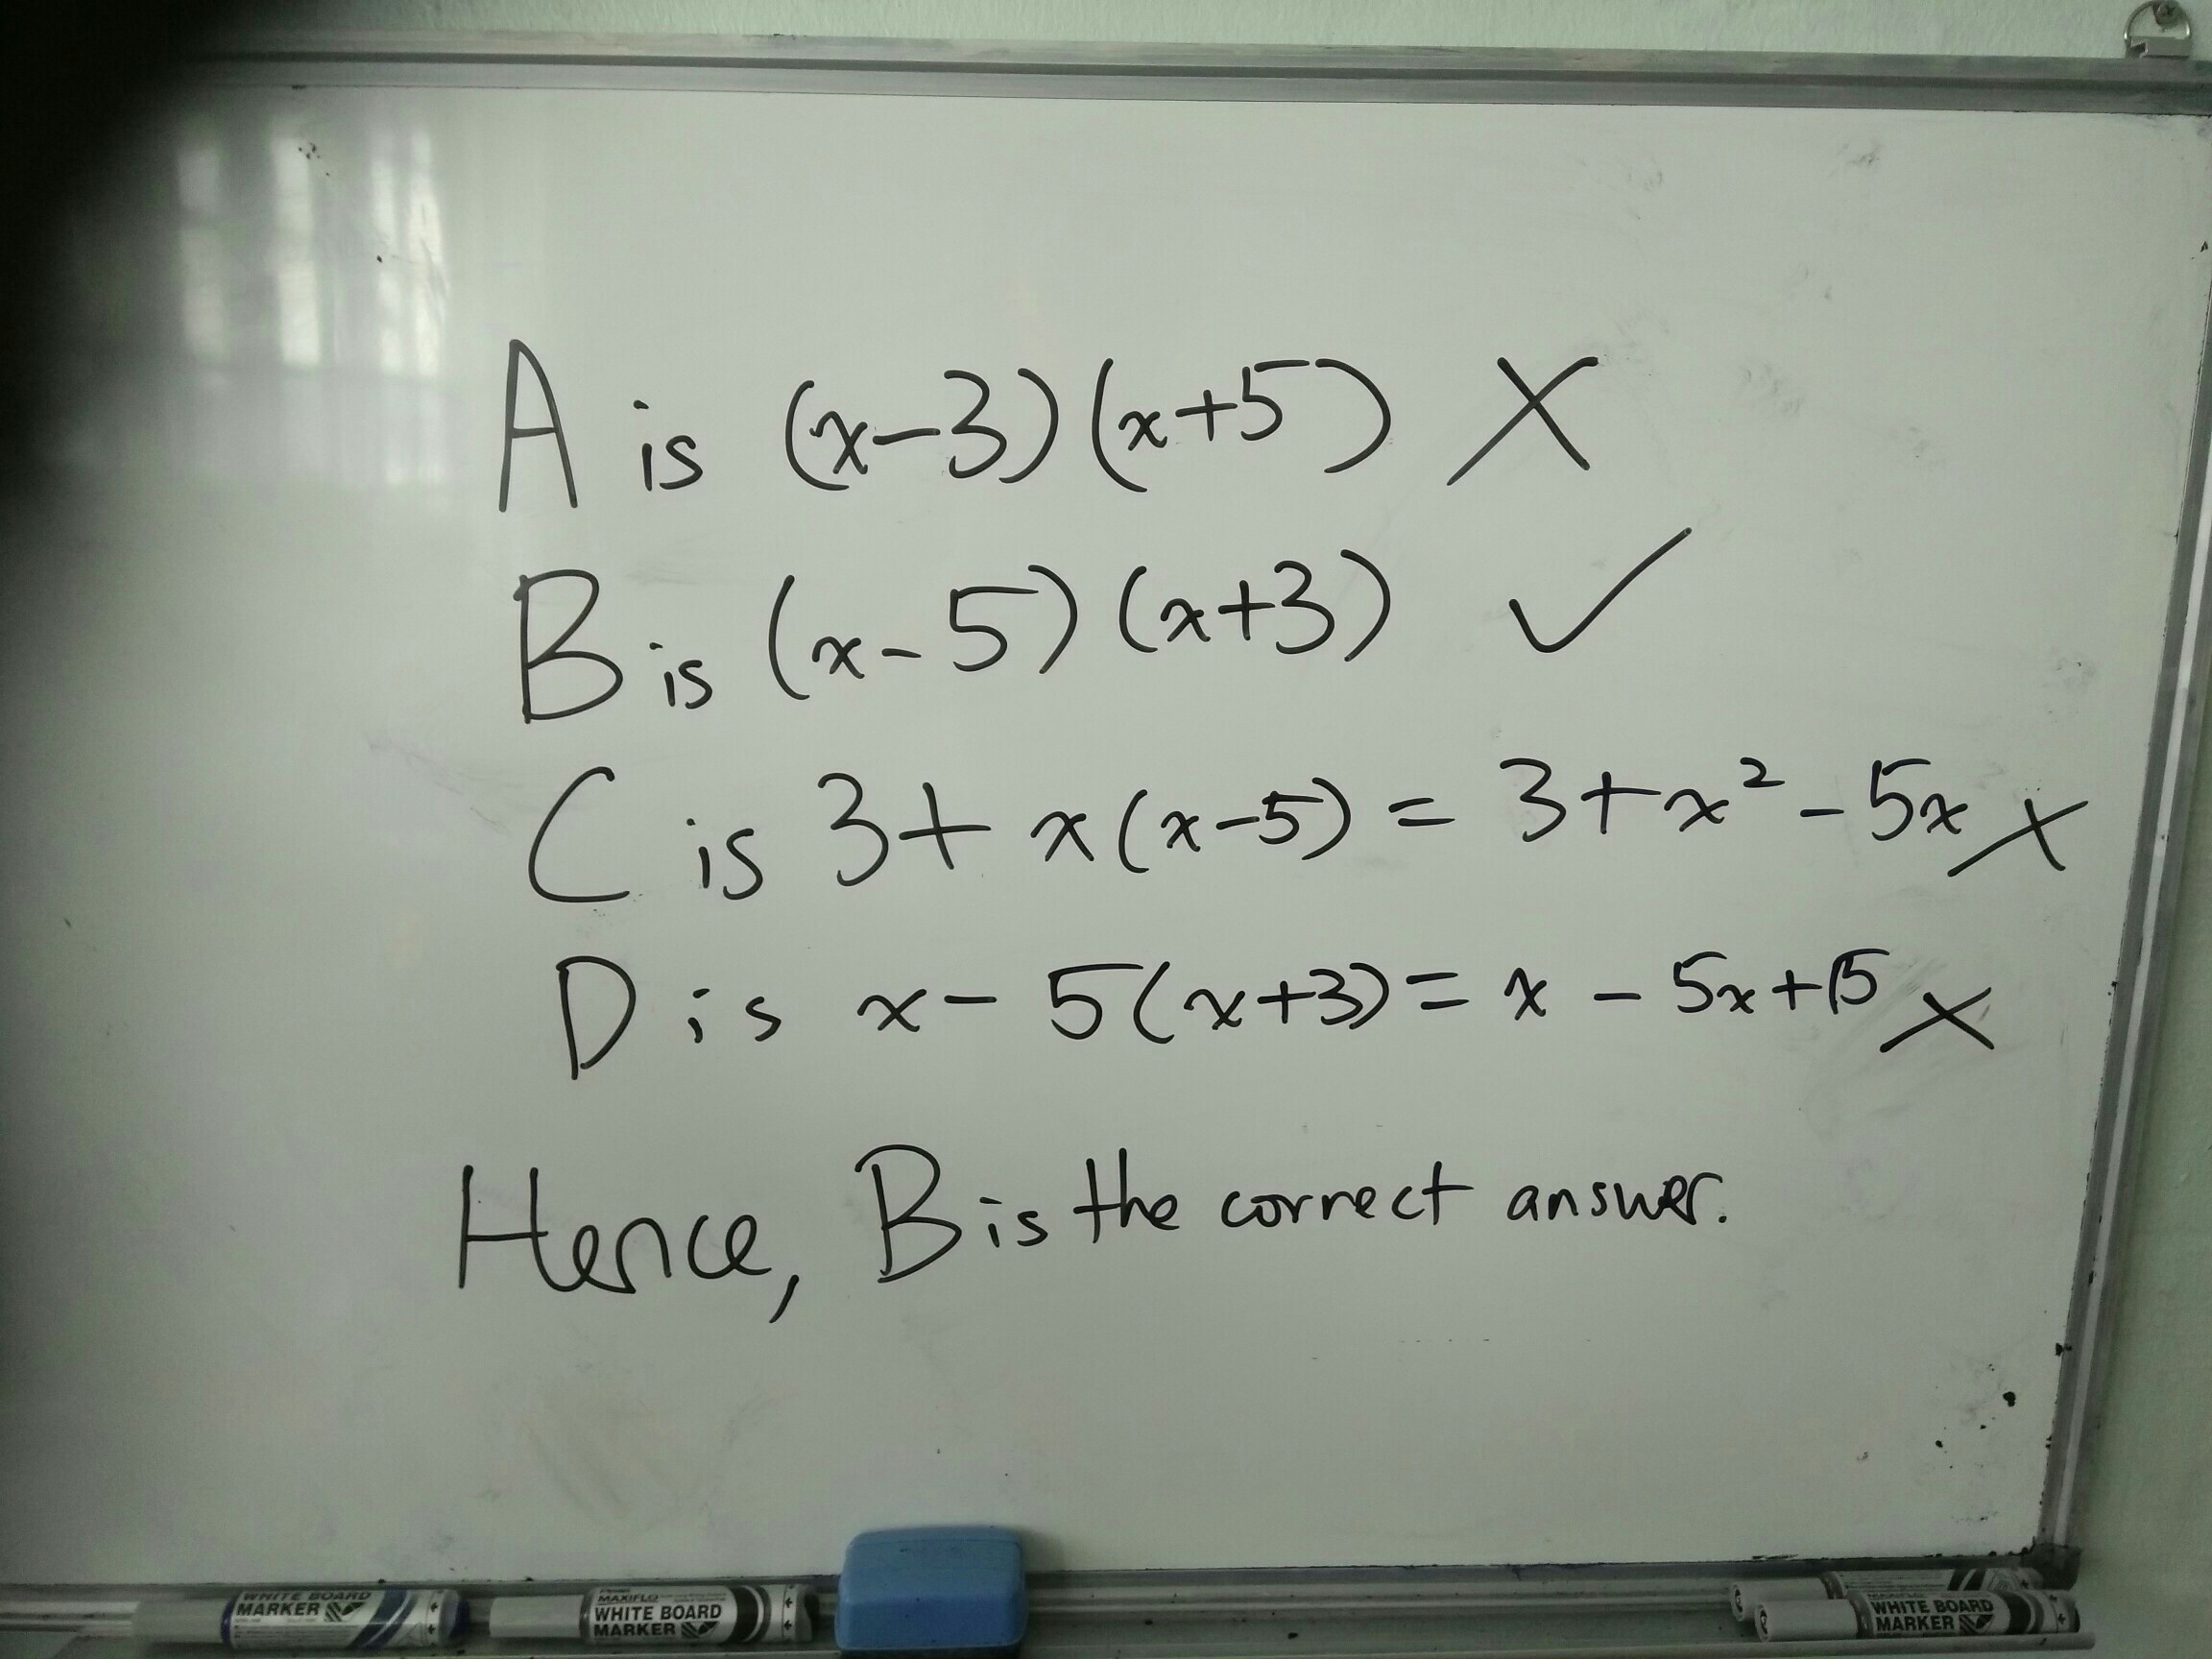 A is (x-3)(x+5) X
B is (x-5)(x+3) ✓
C is 3+ x(x-5) = 3+x²-5x X
D is x- 5(x+3)= x - 5x+15 X
Hence, B is the correct answer.
WHITE BOARD
MARKER
MAXIFLO
WHITE BOARD
MARKER
WHITE BOARD
MARKER